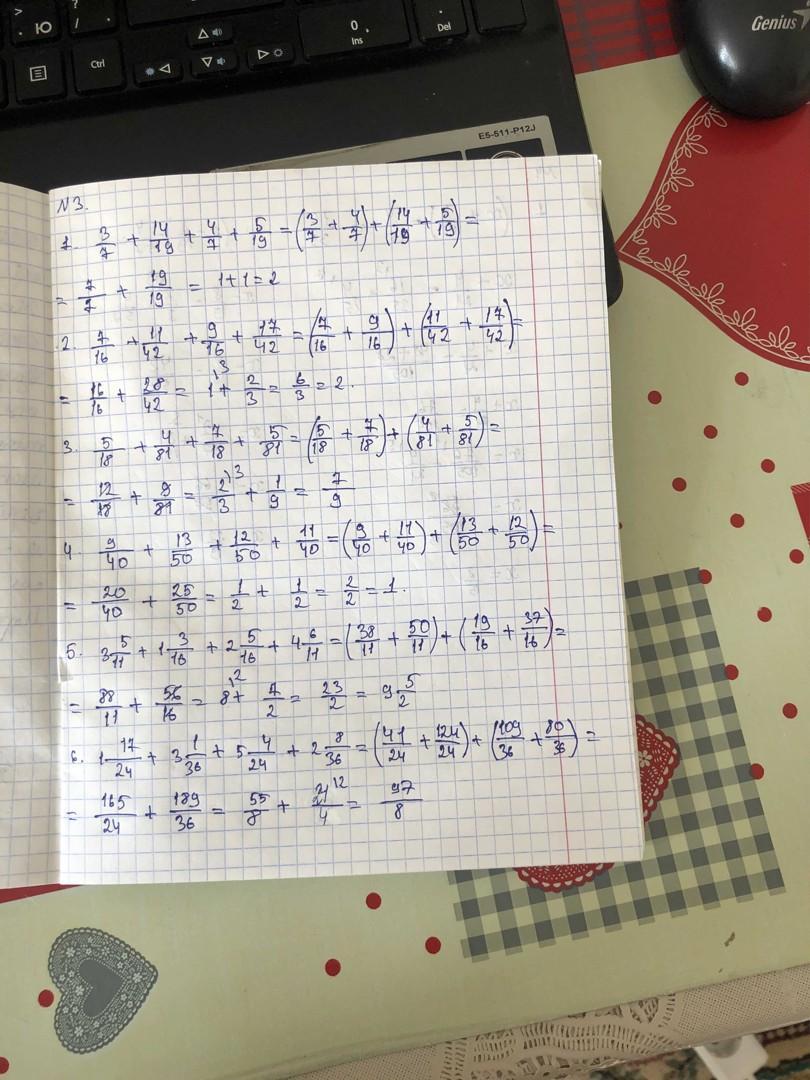 > Ю
? / .
Ctrl
0 Ins
. Del
Genius
E5-511-P12J
N3.
1. 3/7 + 14/19 + 4/7 + 5/19 = (3/7 + 4/7) + (14/19 + 5/19) =
= 7/7 + 19/19 = 1+1=2
2. 7/16 + 11/42 + 9/16 + 17/42 = (7/16 + 9/16) + (11/42 + 17/42) =
= 16/16 + 28/42 = 1\3 + 2/3 = 6/3 = 2.
3. 5/18 + 4/81 + 7/18 + 5/81 = (5/18 + 7/18) + (4/81 + 5/81) =
= 12/18 + 9/81 = 2\3/3 + 1/9 = 7/9
4. 9/40 + 13/50 + 12/50 + 11/40 = (9/40 + 11/40) + (13/50 + 12/50) =
= 20/40 + 25/50 = 1/2 + 1/2 = 2/2 = 1.
5. 3 5/11 + 1 3/16 + 2 5/16 + 4 6/11 = (38/11 + 50/11) + (19/16 + 37/16) =
= 88/11 + 56/16 = 8\2 + 7/2 = 23/2 = 9 5/2
6. 1 17/24 + 3 1/36 + 5 4/24 + 2 8/36 = (41/24 + 124/24) + (109/36 + 80/36) =
= 165/24 + 189/36 = 55/8 + 21\2/4 = 97/8